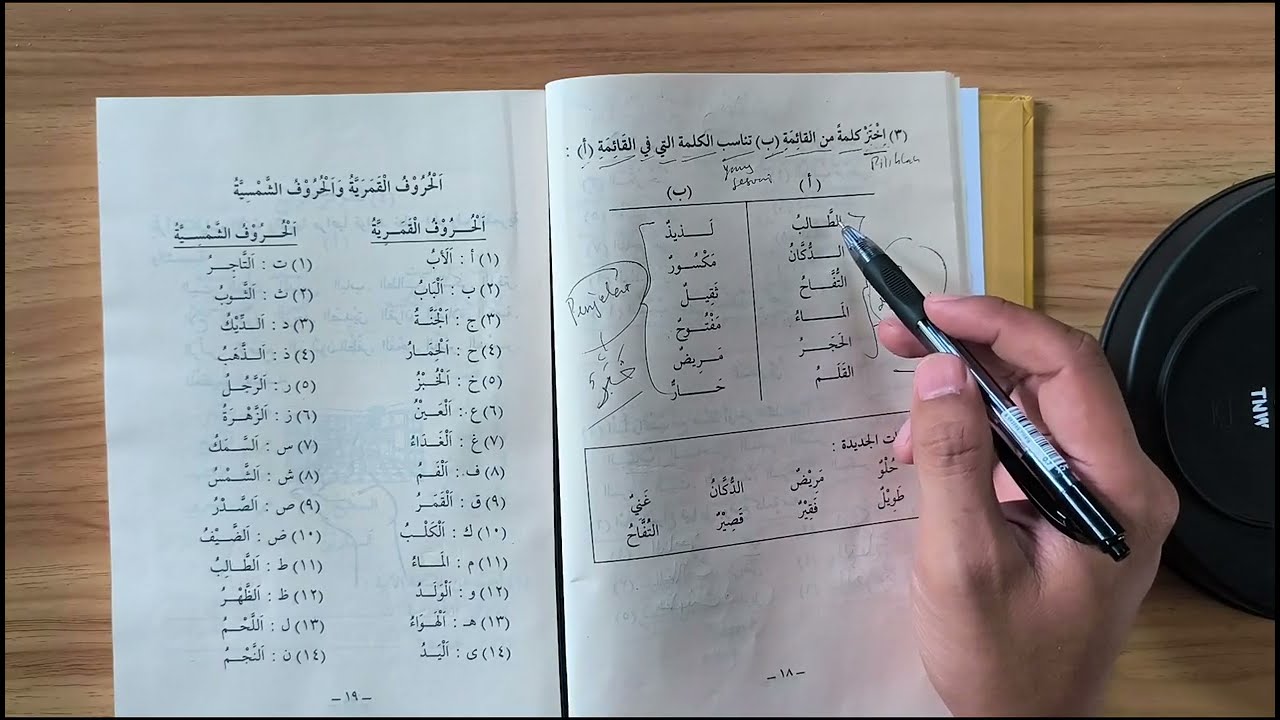 (٣) اِخْتَرْ كلمةً من القائِمَةِ (ب) تناسب الكلمة التي في القَائِمَةِ (أ) :
yang sesuai
Pilihlah
(أ) (ب)
الطَّالِبُ لَذِيذٌ
الدُّكَّانُ مَكْسُورٌ
التُّفَّاحُ ثَقِيلٌ
المَاءُ مَفْتُوحٌ
الحَجَرُ مَرِيضٌ
القَلَمُ حَارٌّ
Penjelas
خَبَر
ات الجديدة :
حُلْوٌ مَرِيْضٌ الدُّكَّانُ غَنِيٌّ
طَوِيْلٌ فَقِيْرٌ قَصِيْرٌ التُّفَّاحُ
– ١٨ –
اَلْحُرُوْفُ الْقَمَرِيَّةُ وَالْحُرُوْفُ الشَّمْسِيَّةُ
اَلْحُرُوْفُ الْقَمَرِيَّةُ اَلْحُرُوْفُ الشَّمْسِيَّةُ
(١) أ : اَلْأَبُ (١) ت : اَلتَّاجِرُ
(٢) ب : اَلْبَابُ (٢) ث : اَلثَّوْبُ
(٣) ج : اَلْجَنَّةُ (٣) د : اَلدِّيْكُ
(٤) ح : اَلْحِمَارُ (٤) ذ : اَلذَّهَبُ
(٥) خ : اَلْخُبْزُ (٥) ر : اَلرَّجُلُ
(٦) ع : اَلْعَيْنُ (٦) ز : اَلزَّهْرَةُ
(٧) غ : اَلْغَدَاءُ (٧) س : اَلسَّمَكُ
(٨) ف : اَلْفَمُ (٨) ش : اَلشَّمْسُ
(٩) ق : اَلْقَمَرُ (٩) ص : اَلصَّدْرُ
(١٠) ك : اَلْكَلْبُ (١٠) ض : اَلضَّيْفُ
(١١) م : اَلمَاءُ (١١) ط : اَلطَّالِبُ
(١٢) و : اَلْوَلَدُ (١٢) ظ : اَلظَّهْرُ
(١٣) هـ : اَلْهَوَاءُ (١٣) ل : اَللَّحْمُ
(١٤) ى : اَلْيَدُ (١٤) ن : اَلنَّجْمُ
– ١٩ –
TNW